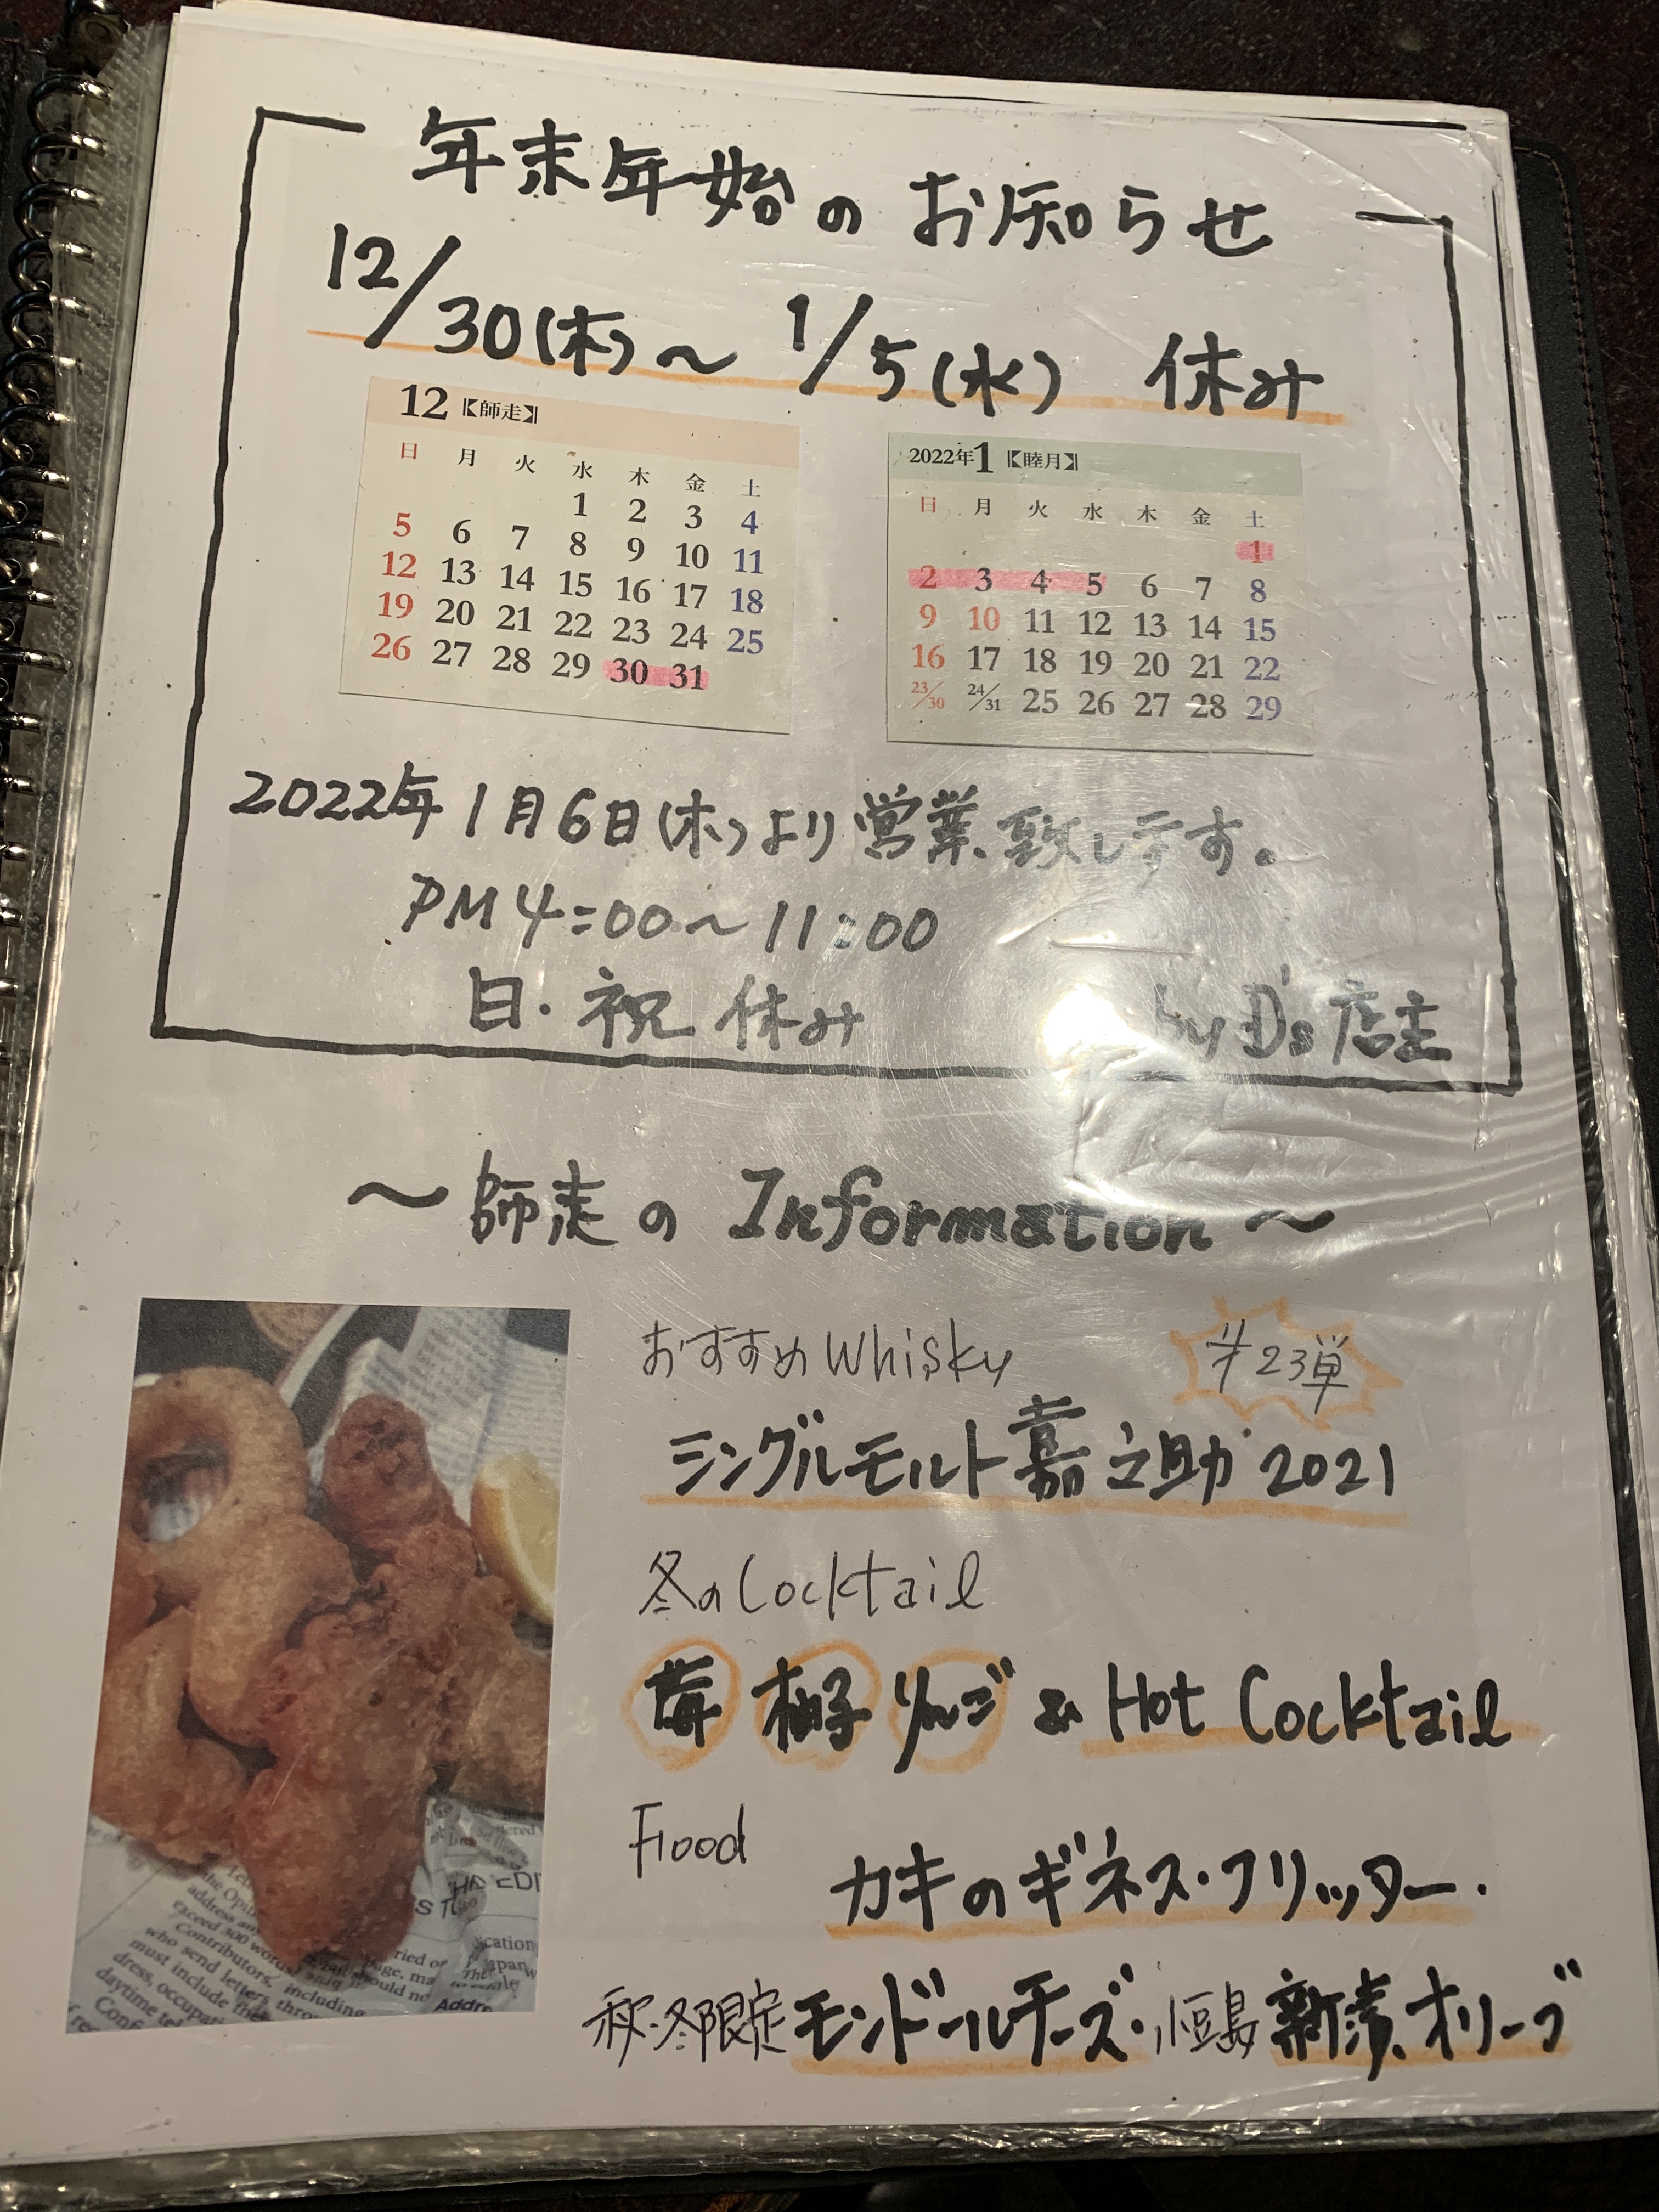 年末年始のお知らせ
12/30(木)〜1/5(水) 休み
12【師走】
日 月 火 水 木 金 土
1 2 3 4
5 6 7 8 9 10 11
12 13 14 15 16 17 18
19 20 21 22 23 24 25
26 27 28 29 30 31
2022年1【睦月】
日 月 火 水 木 金 土
1
2 3 4 5 6 7 8
9 10 11 12 13 14 15
16 17 18 19 20 21 22
23/30 24/31 25 26 27 28 29
2022年1月6日(木)より営業致します。
PM4:00〜11:00
日・祝 休み
by D's 店主
〜師走の Information〜
おすすめ Whisky
㐧23弾
シングルモルト嘉之助 2021
冬のCocktail
苺 柚子 りんご & Hot Cocktail
Food
カキのギネス・フリッター.
秋・冬限定 モンドールチーズ・小豆島 新漬オリーブ
the Opin
address an
exceed 300 words
Contributors,
who send letters
must include the
including
dress, occupat
daytime tel
ried of
should no
Addre
ication
Japan